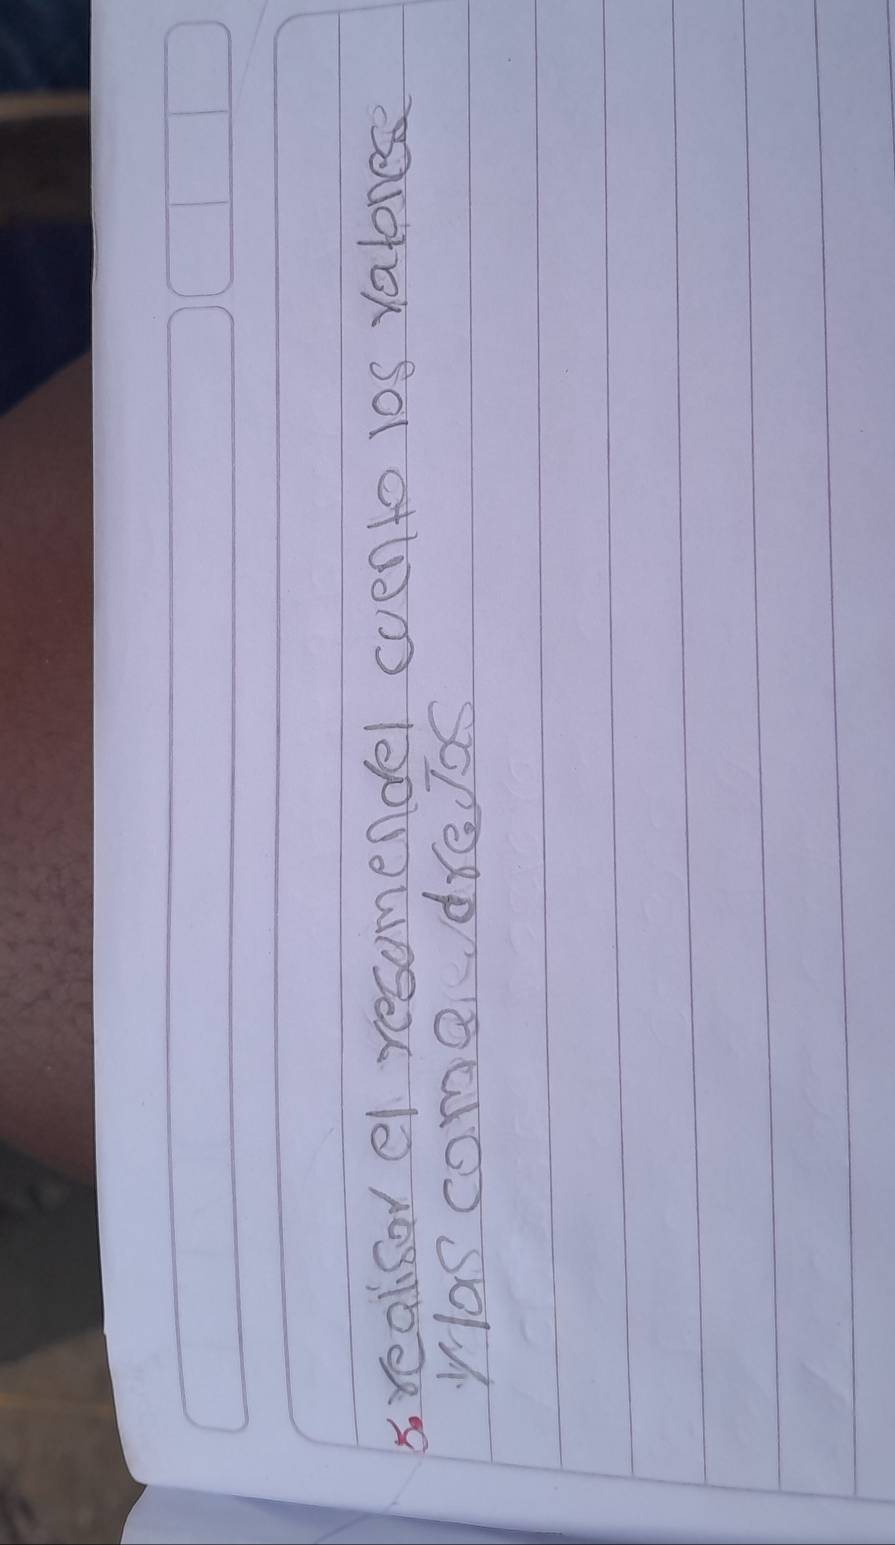 5. realisar el resumendel cuento los ratones
y las comadrejas